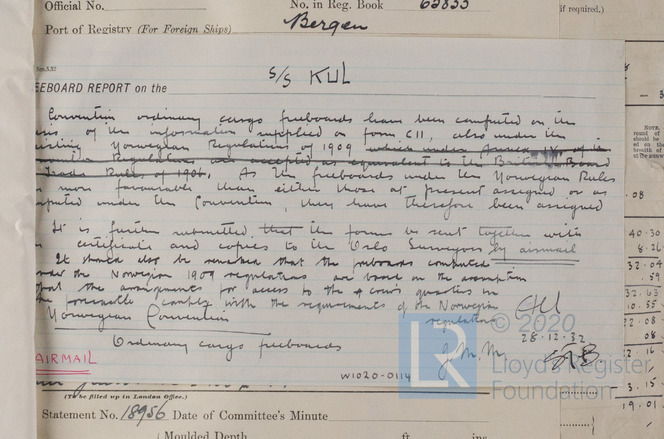 Official No.
No. in Reg. Book 63833
if required.)
Port of Registry (For Foreign Ships) Bergen
EEBOARD REPORT on the S/S KUL
Convention ordinary cargo freeboards have been computed on the
of the information supplied on form C11, also under the
Norwegian Regulations of 1909 which under Annex IX of the
Regulations are accepted as equivalent to the British Board
Trade Rules of 1906. As the freeboards under the Norwegian Rules
more favourable than either those at present assigned or as
computed under the Convention, they have therefore been assigned
It is further submitted that the form be sent together with
certificate and copies to the Oslo Surveyors by airmail
It should also be remarked that the freeboards computed
under the Norwegian 1909 regulations are based on the assumption
that the arrangements for access to the crew's quarters in
the forecastle comply with the requirements of the Norwegian
regulations
Norwegian Convention
Ordinary cargo freeboards
28.12.32
J.M.M.
AIRMAIL
W1020-0114
© 2020
LR
Lloyd's Register
Foundation
(To be filled up in London Office.)
Statement No. 18956 Date of Committee's Minute
Moulded Depth ft. ins.
NOTE,
round of
should be
.08
40.30
8.26
32.04
.59
32.63
10.55
22.08
.08
3.15
19.01